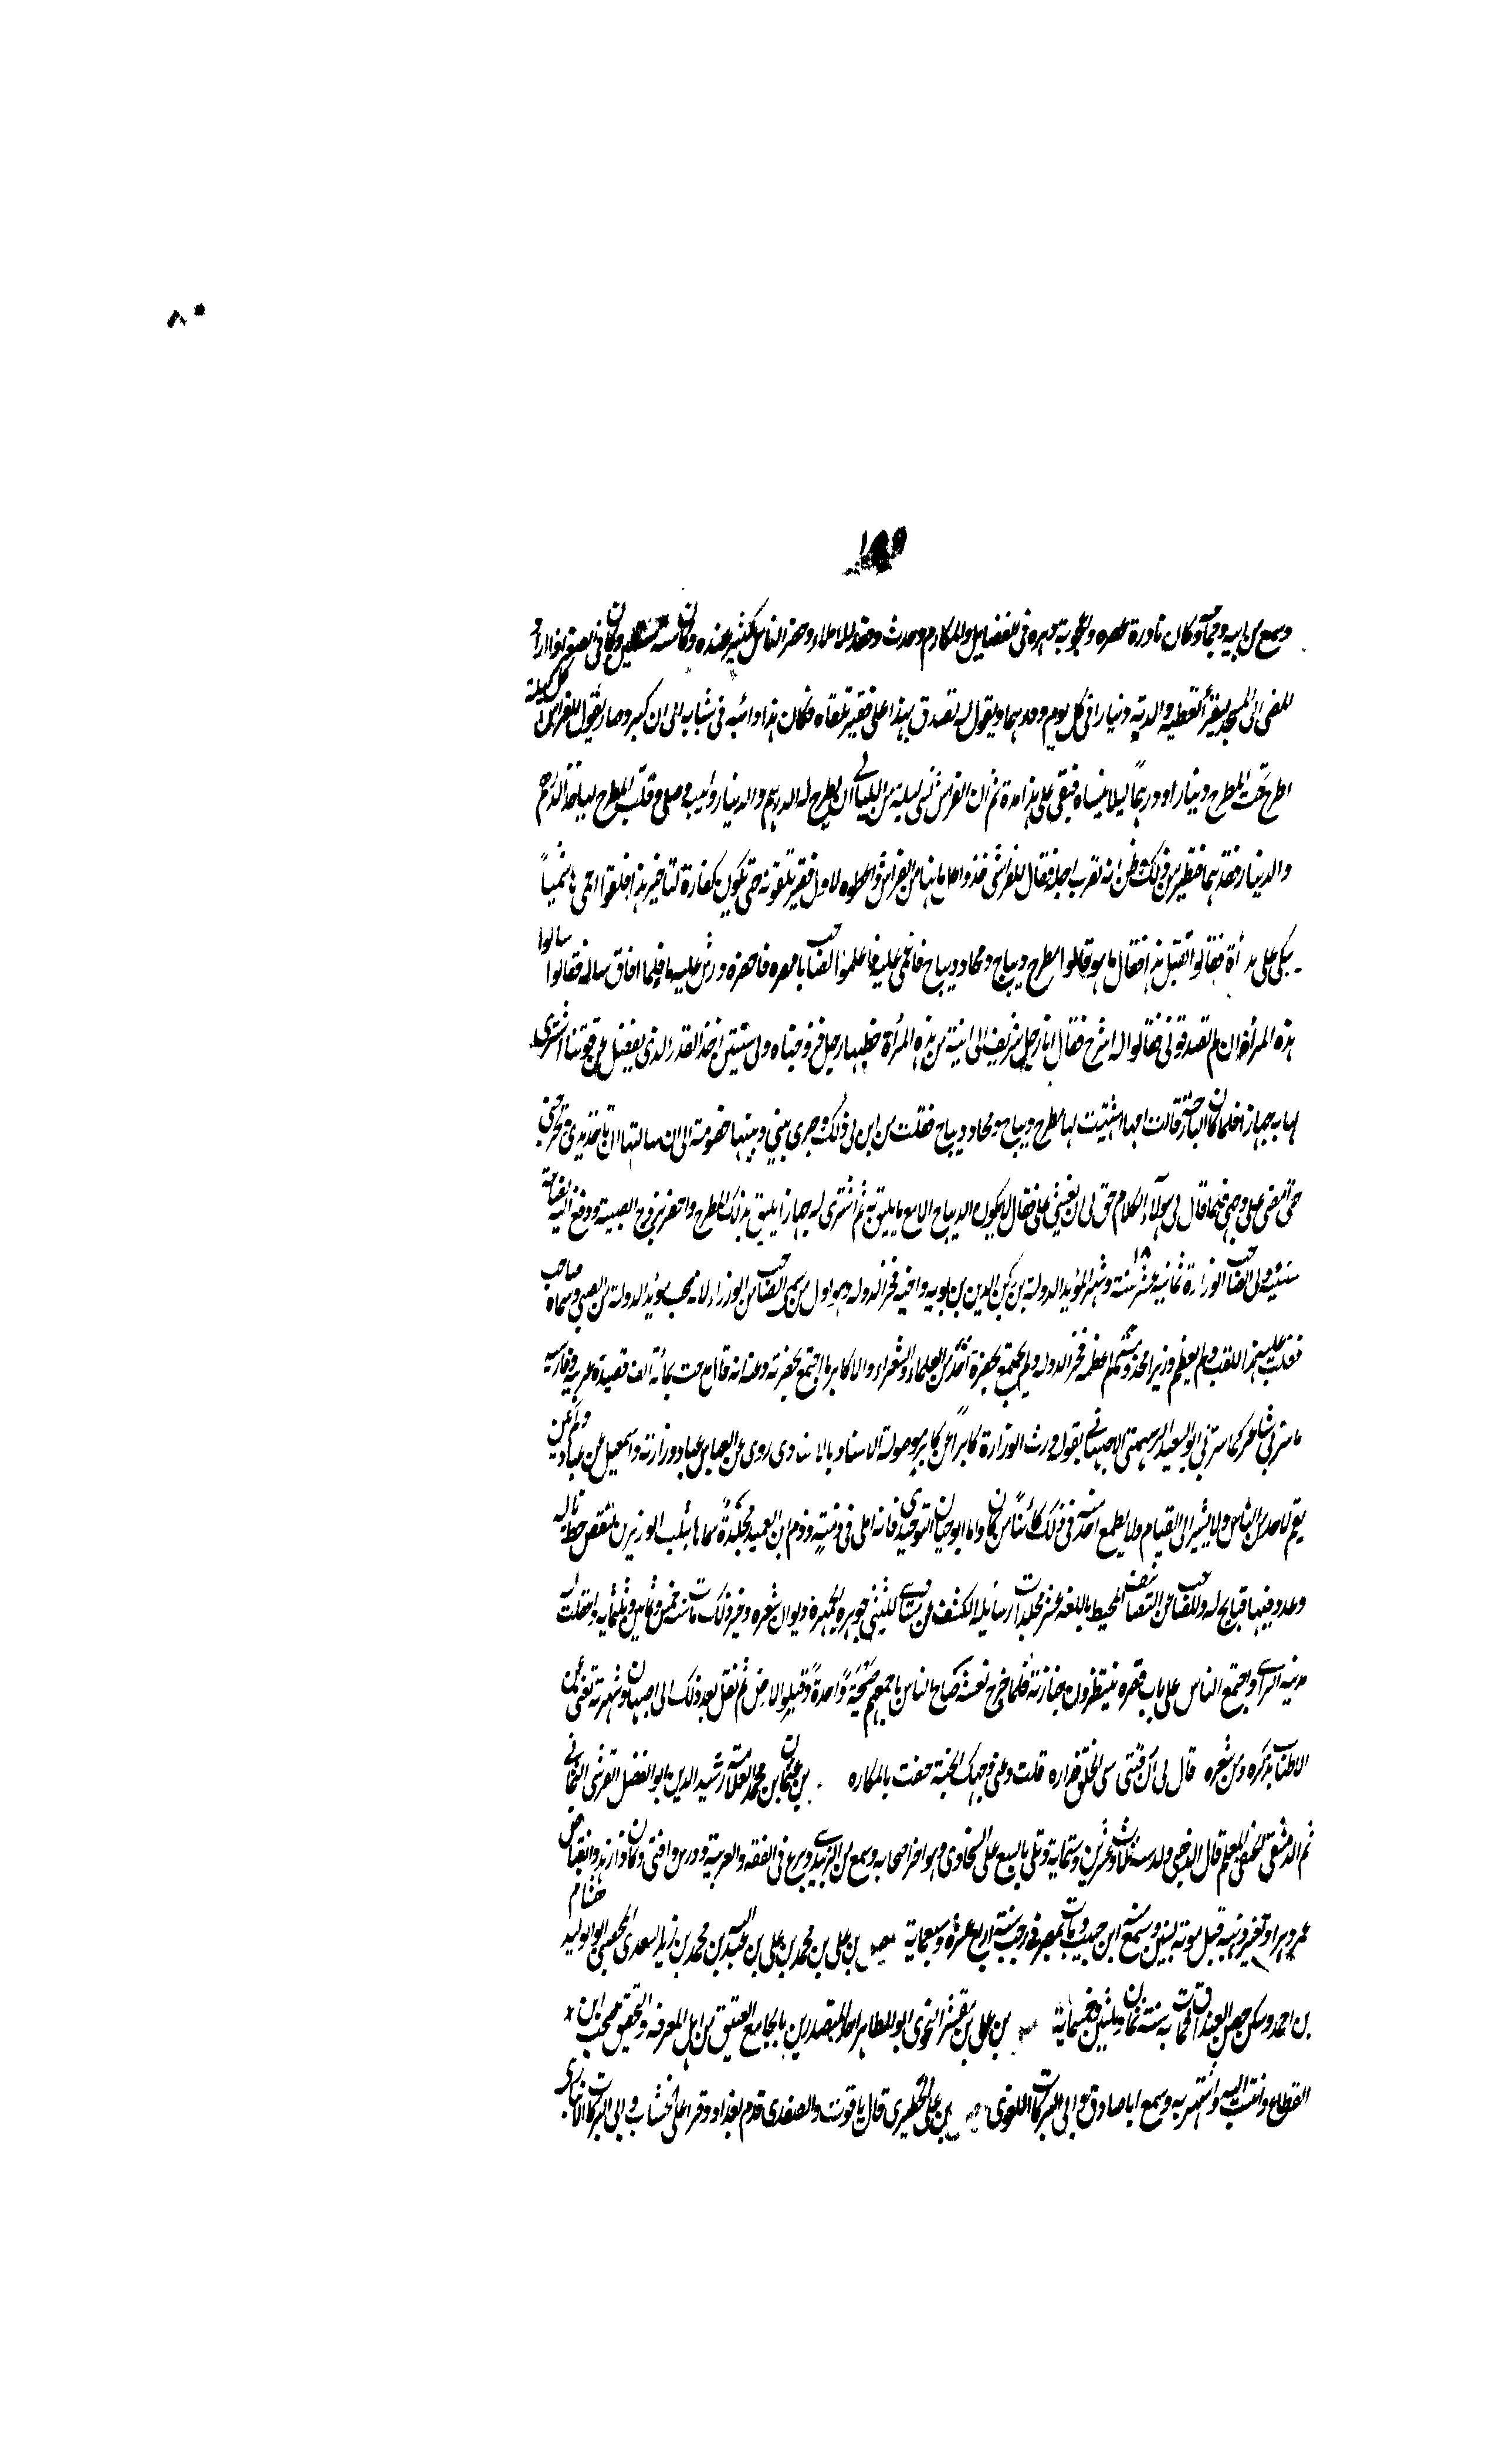 ٨٠
وسمع من ابيه وجماعة وكان نادرة عصره واعجوبة دهره فى الفضايل والمكارم وحدث وقعد للاملاء وحضر الناس الكثير عنده وكان فى الصغر اذا اراد
المضى الى المسجد ليقرأ تعطيه والدته دينارا فى كل يوم ودرهما ويقول له تصدق بهذا على فقير تلقاه فكان هذا دابه فى شبابه الى ان كبر وصار يقول للفراش كل ليلة
اطرح تحت المطرح دينارا ودرهما ليلا ينساه فبقى على هذا مدة ثم ان الفراش نسى ليلة من الليالى ان يطرح له الدرهم والدينار وانتبه وصلى وقلب المطرح لياخذ الدرهم
والدينار ففقدهما فتطير من ذلك وظن انه لقرب اجله فقال للفراش خذوا كل ما هنا من الفراش واعطوه لاول فقير تلقونه حتى يكون كفارة لتاخير هذا فلقوا اعمى هاشميا
يتكى على يد امرأة فقالوا تقبل هذا فقال ما هو فقالوا مطرح ديباج ومخاد ديباج فاغمى عليه فاعلموا الصاحب بامره فاحضره ورش عليه ماء فلما افاق ساله فقالوا سالوا
هذه المرأة ان لم تصدقونى فقالوا له اشرح فقال انا رجل شريف لى ابنة من هذه المرأة خطبها رجل فزوجناه ولى سنتين آخذ القدر الذى يفضل عن قوتنا اشترى
لها به جهازا فلما كان البارحة قالت امها اشتهيت لها مطرح ديباج ومخاد ديباج فقلت من اين لى ذلك وجرى بينى وبينها خصومة الى ان سالتها ان تاخذ بيدى وتخرجنى
حتى امضى على وجهى فلما قال لى هؤلاء الكلام حق لى ان يغشى على فقال لا يكون الديباج الا مع ما يليق به ثم اشترى له جهازا يليق بذلك المطرح واحضر زوج الصبية ودفع اليه بضاعة
سنية ولى الصاحب الوزارة ثمانية عشر سنة وشهرا لمؤيد الدولة بن ركن الدين بن بويه واخيه فخر الدولة وهو اول من سمى الصاحب من الوزراء لانه صحب مؤيد الدولة من الصبى وسماه صاحب
فغلب عليه هذا اللقب ولم يعظم وزيرا مخدومه ما عظمه فخر الدولة ولم يجتمع بحضرة احد من العلماء والشعراء والاكابر ما اجتمع بحضرته وعنه انه قال مدحت بمائة الف قصيدة عربية وفارسية
ما سرنى شاعر كما سرنى ابو سعيد الرستمى الاصبهانى بقوله ورث الوزارة كابرا عن كابر موصولة الاسناد بالاسناد يروى عن العباس عباد وزارته واسمعيل عن عباد ولم يكن
يقم لاحد من الناس ولا يشير الى القيام ولا يطمع احد منه فى ذلك كائنا من كان واما ابو حيان التوحيدى فانه املى فى ذمه وذم ابن العميد مجلدة سماها ثلب الوزيرين لنقص حظ ناله
وعدد فيها قبايح له وللصاحب من التصانيف المحيط باللغة عشر مجلدات رسايله الكشف عن مساوى المتنبى جوهرة الجمهرة وديوان شعره وغير ذلك مات سنة خمس وثمانين وثلثماية واغلقت له
مدينة الرى واجتمع الناس على باب قصره ينتظرون جنازته فلما خرج نعشه صاح الناس باجمعهم صيحة واحدة وقبلوا الارض ثم نقل بعد ذلك الى اصبهان وشهرته تغنى عن
الاطناب بذكره ومن شعره قال لى ان رقيبى سى الخلق فداره قلت دعنى وجهك الجنة حفت بالمكاره بن عثمان بن محمد العلامة رشيد الدين ابو الفضل القرشى التيمانى
ثم الدمشقى الحنفى المعلم قال الذهبى ولد سنة ثلاث وعشرين وستماية وتلى بالسبع على السخاوى وهو اخر اصحابه وسمع من الزبيدى وبرع فى الفقه والعربية ودرس وافتى وكان ذا زهد وانقباض
عمر دهرا وتغير ذهنه قبل موته بسنتين وسمع منه ابن حبيب ومات بمصر فى رجب سنة اربع عشرة وسبعماية بن على بن محمد بن على بن عبد الله بن محمد بن زيد السعدى الحمصى ابو الوليد هشام
بن احمد وسكن حصن القصر مات به سنة ثمان وثلثين وخمسماية بن على بن مقشر النحوى ابو الطاهر احد المتصدرين بالجامع العتيق من اهل المعرفة والتحقيق صحب ابن
القطاع وانتسب اليه واشتهر به وسمع ابا صادق وابى البركات اللغوى بن على الحظيرى قال ياقوت والصفدى قدم بغداد وقرا على الخشاب وابى البركات الانبارى